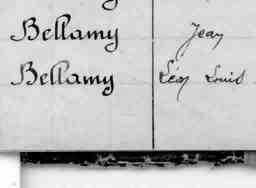 Bellamy Jean
Bellamy Léon Louis